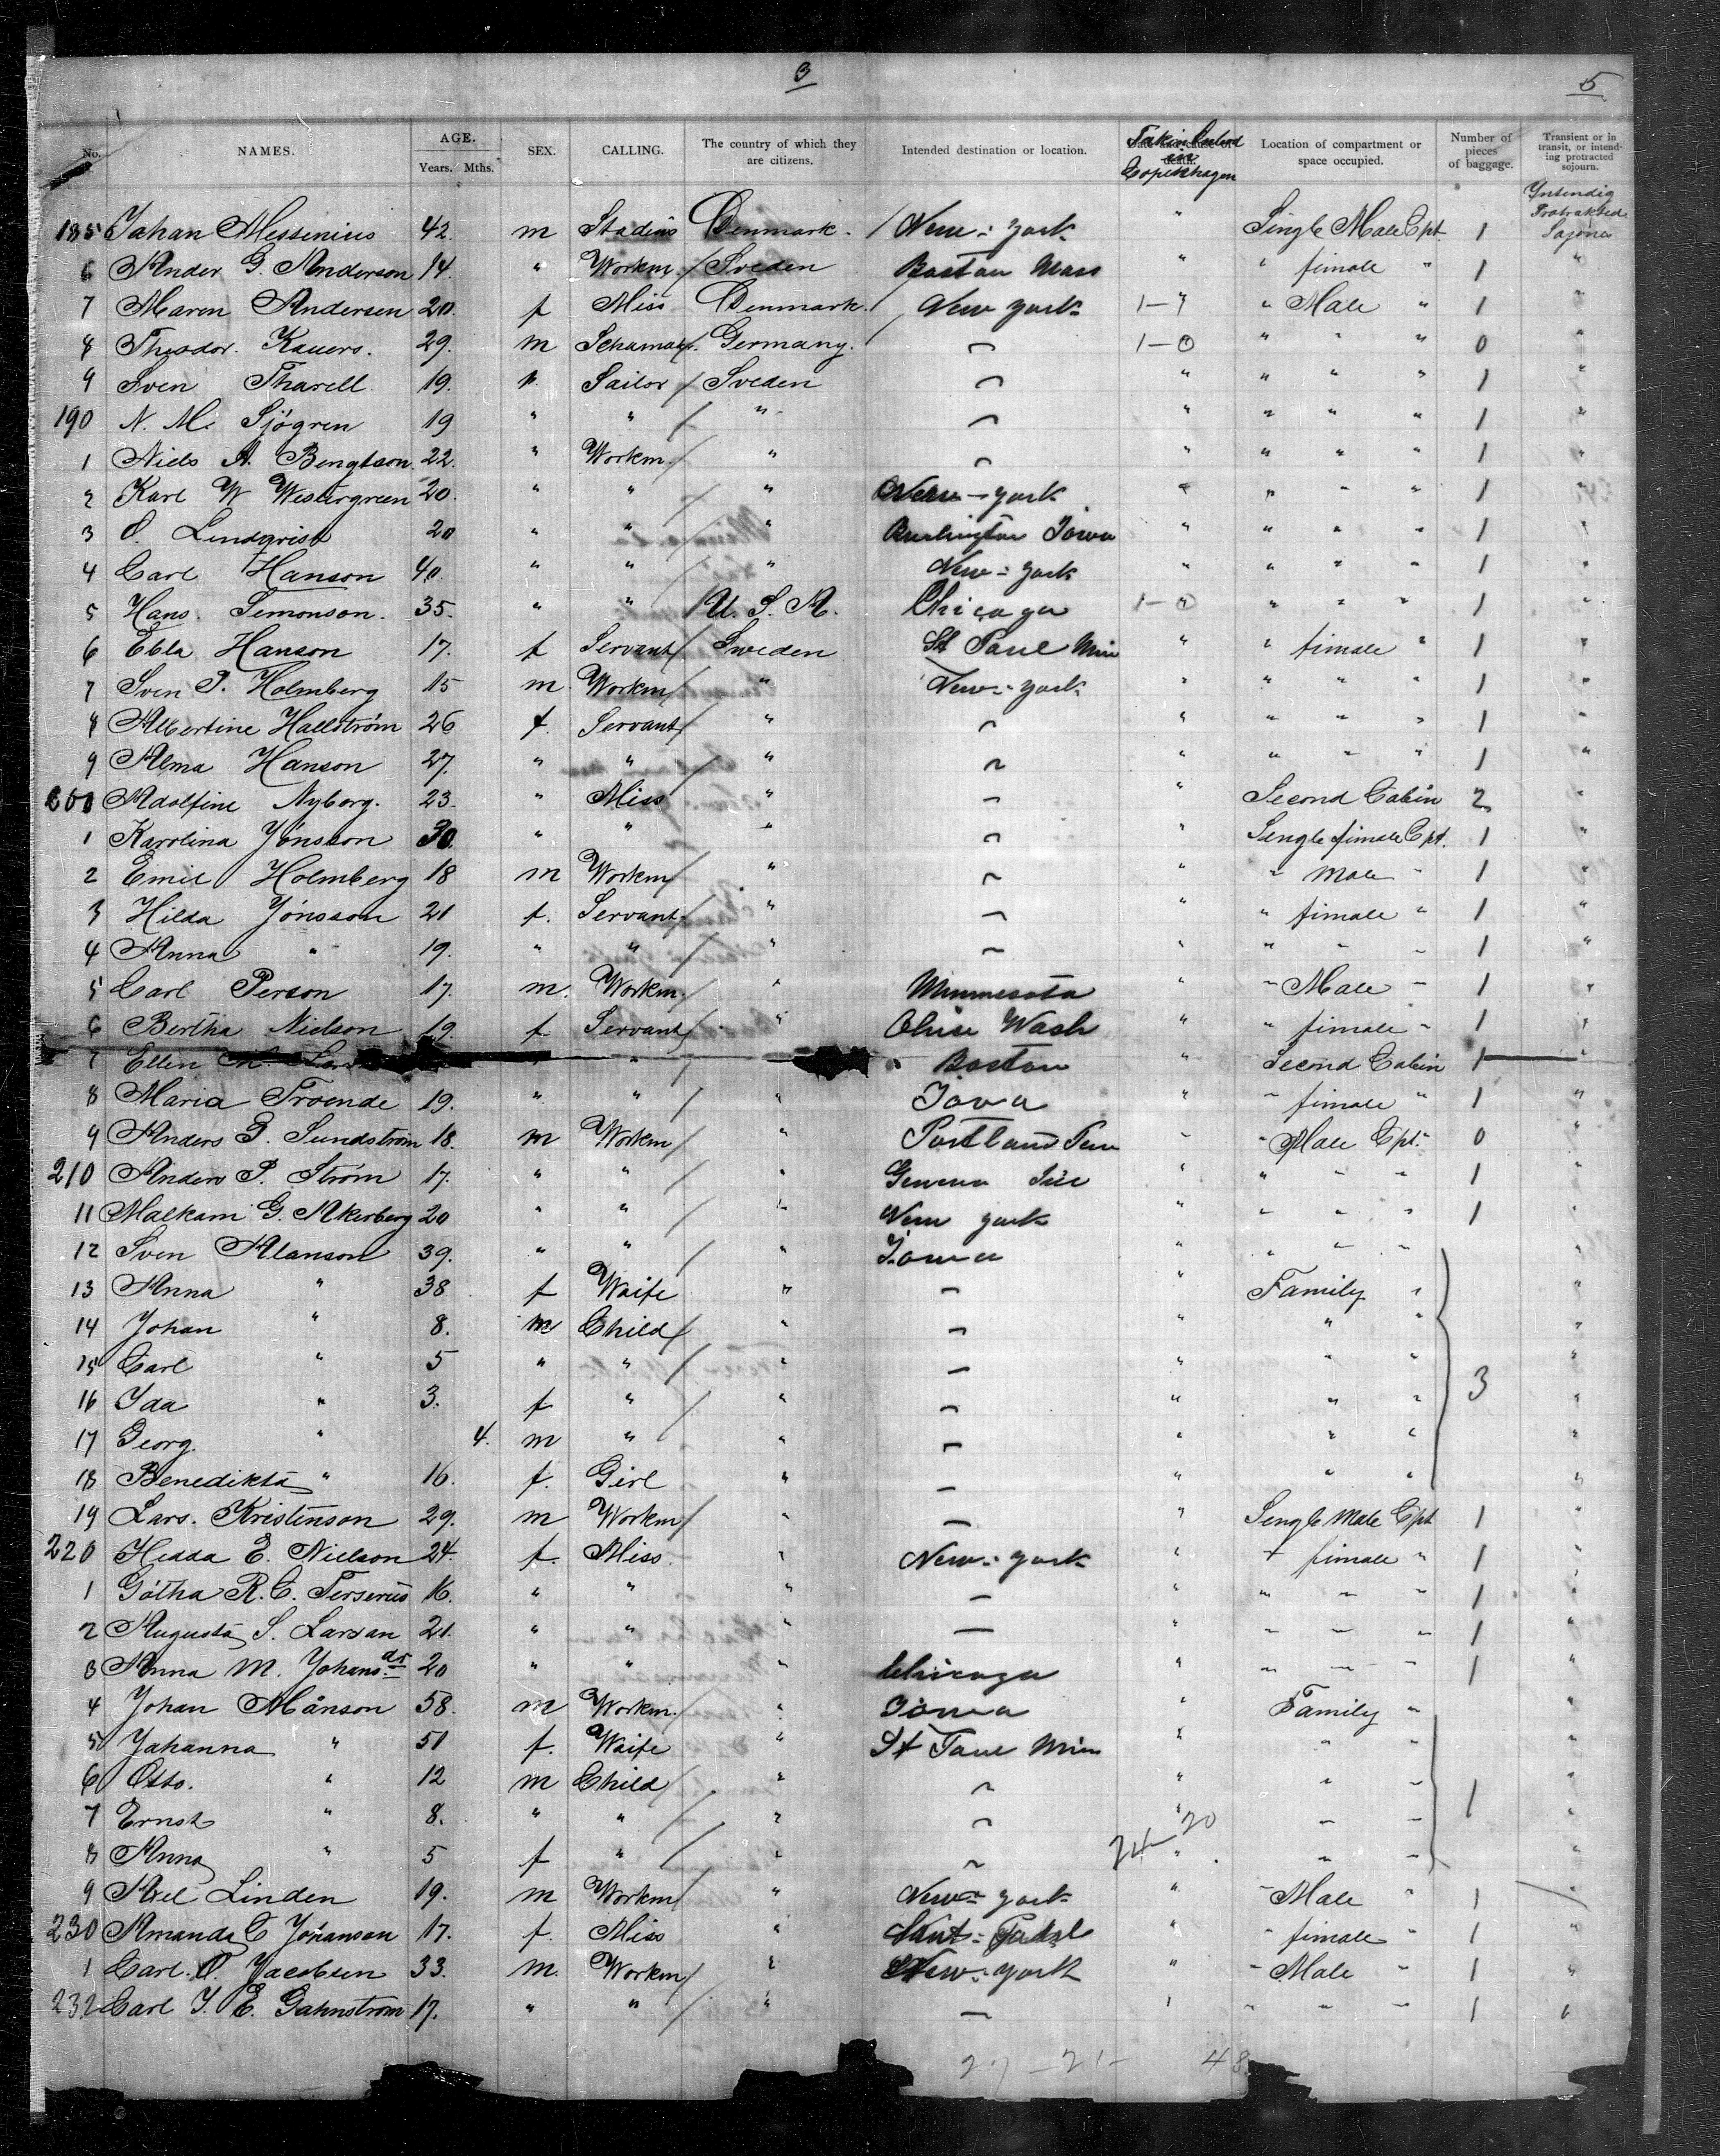 3
5
No. NAMES. AGE. Years. Mths. SEX. CALLING. The country of which they are citizens. Intended destination or location. Copenhagen Location of compartment or space occupied. Number of pieces of baggage. Transient or in transit, or intending protracted sojourn.
185 Johan Messenius 42. m Denmark. New-york " Single Male Cpt. 1
6 Ander G. Anderson 14. " Workm. Sveden Boston Mass " " fimale " 1 "
7 Maren Andersen 20. f Miss Denmark. New york " " Male " 1 "
8 Theodor. Kauers. 29. m Germany. 1-0 " " " 0 "
9 Sven Tharell 19. Sailor Sveden " " " " 1 "
190 N. M. Sjögren 19 " " " " " " " 1 "
1 Niels A. Bengtson 22. " Workm. " " " " " 1 "
2 Karl W Westergreen 20. " " " New-york " " " " 1 "
3 O. Lindqvist 20 " " " Burlington Iowa " " " " 1 "
4 Carl Hanson 40. " " " New-york " " " " 1 "
5 Hans. Semonson. 35. " " U. S. A. Chicago 1-0 " " " 1 "
6 Ebla Hanson 17. f Servant Sweden St Paul Min " " fimale " 1 "
7 Sven P. Holmberg 15 m. Workm " New-york " " " " 1 "
8 Albertine Hallström 26 f. Servant " " " " " 1 "
9 Alma Hanson 27. " " " " " " " 1 "
200 Adolfine Nyborg. 23. " Miss " " Second Cabin 2 "
1 Karolina Jönsson 30. " " " " Single fimale Cpt. 1 "
2 Emil Holmberg 18 m Workm " " " Male " 1 "
3 Hilda Jönsson 21 f. Servant " " " fimale " 1 "
4 Anna " 19. " " " " " " " 1 "
5 Carl Person 17. m. Workm. " Minnesota " " Male " 1 "
6 Bertha Nielson 19. f. Servant " Wash " " fimale " 1 "
7 Ellen " Boston " Second Cabin 1 "
8 Maria Troende 19. " " " Iova " " fimale " 1 "
9 Anders P. Sundström 18. m Workm " Portland " " Male Cpt. 0 "
210 Anders P. Ström 17. " " " Geneva " " " " 1 "
11 Malkam G. Akerberg 20 " " " New york " " " " 1 "
12 Sven Alanson 39. " " " Iowa " " " " "
13 Anna " 38 f Waife " " Family " "
14 Johan " 8. m Child " " " " "
15 Carl " 5 " " " " " " 3 "
16 Ida " 3. f " " " " " "
17 Georg. " 4. m " " " " " "
18 Benedikta " 16. f. Girl " " " " "
19 Lars. Kristenson 29. m Workm " " Single Male Cpt 1 "
220 Hedda E. Nielson 24. f. Miss. " New-york " " fimale " 1 "
1 Götha R. C. Terserus 16. " " " " " " " 1 "
2 Augusta S. Larsan 21. " " " " " " " 1 "
3 Anna M. Johansdr 20 " " " Chicago " " " " 1 "
4 Johan Månson 58. m Workm. " Iowa " Family " "
5 Johanna " 51 f. Waife " St Paul Min " " " "
6 Otto. " 12 m Child " " " " "
7 Ernst " 8. " " " " " " 1 "
8 Anna " 5 f " " " " " "
24-20
9 Axel Linden 19. m Workm " New-york " " Male " 1 "
230 Amanda C Johanson 17. f. Miss " " " fimale " 1 "
1 Carl. O. Jacobsen 33. m. Workm " New-york " " Male " 1 "
232 Carl J. E. Gahnström 17. " " " " " " " 1 "
27-21- 48